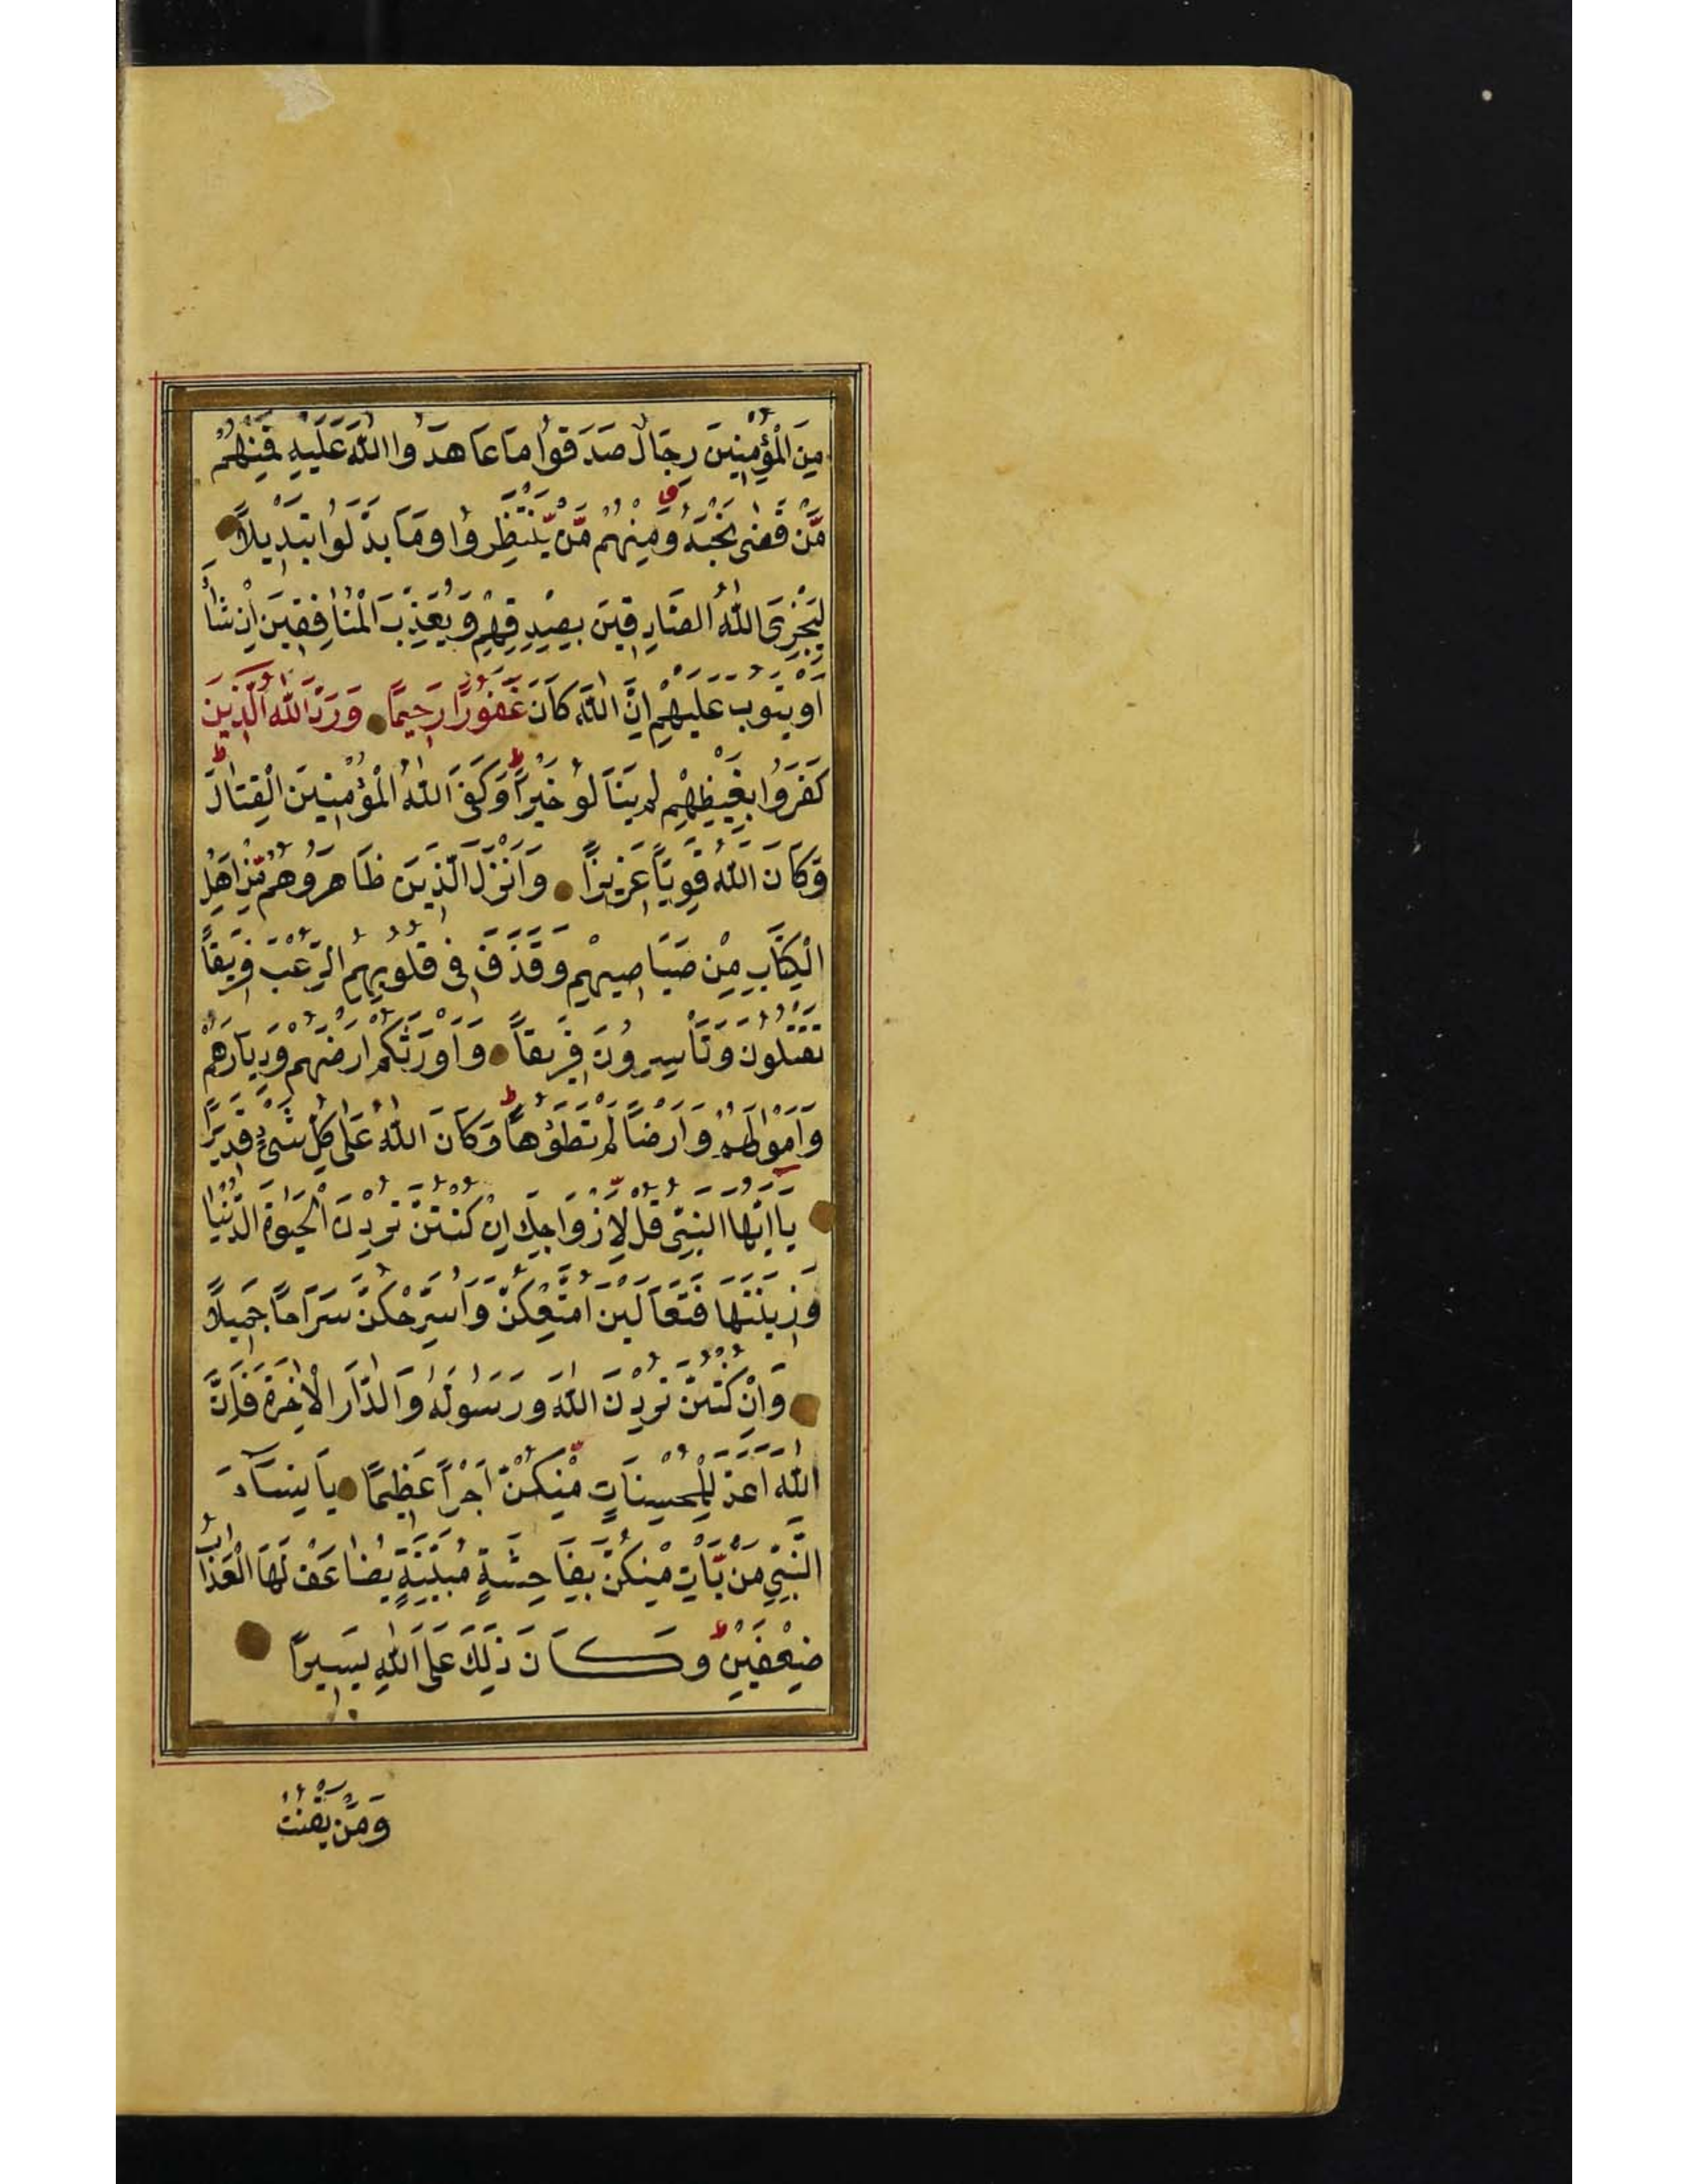 مِنَ الْمُؤْمِنِينَ رِجَالٌ صَدَقُوا مَا عَاهَدُوا اللّٰهَ عَلَيْهِ فَمِنْهُمْ
مَّنْ قَضٰى نَحْبَهُ وَمِنْهُمْ مَّنْ يَّنْتَظِرُوا وَمَا بَدَّلُوا تَبْدِيلًا
لِيَجْزِىَ اللّٰهُ الصَّادِقِينَ بِصِدْقِهِمْ وَيُعَذِّبَ الْمُنَافِقِينَ اِنْ شَاءَ
اَوْ يَتُوبَ عَلَيْهِمْ اِنَّ اللّٰهَ كَانَ غَفُورًا رَحِيمًا وَرَدَّ اللّٰهُ الَّذِينَ
كَفَرُوا بِغَيْظِهِمْ لَمْ يَنَالُو خَيْرًا ط وَكَفَى اللّٰهُ الْمُؤْمِنِينَ الْقِتَالَ ط
وَكَانَ اللّٰهُ قَوِيًّا عَزِيزًا وَاَنْزَلَ الَّذِينَ ظَاهَرُوهُمْ مِّنْ اَهْلِ
الْكِتَابِ مِنْ صَيَاصِيهِمْ وَقَذَفَ فِى قُلُوبِهِمُ الرُّعْبَ فَرِيقًا
تَقْتُلُونَ وَتَأْسِرُونَ فَرِيقًا وَاَوْرَثَكُمْ اَرْضَهُمْ وَدِيَارَهُمْ
وَاَمْوَالَهُمْ وَاَرْضًا لَمْ تَطَؤُهَا ط وَكَانَ اللّٰهُ عَلٰى كُلِّ شَىْءٍ قَدِيرًا
يَا اَيُّهَا النَّبِىُّ قُلْ لِّاَزْوَاجِكَ اِنْ كُنْتُنَّ تُرِدْنَ الْحَيٰوةَ الدُّنْيَا
وَزِينَتَهَا فَتَعَالَيْنَ اُمَتِّعْكُنَّ وَاُسَرِّحْكُنَّ سَرَاحًا جَمِيلًا
وَاِنْ كُنْتُنَّ تُرِدْنَ اللّٰهَ وَرَسُولَهُ وَالدَّارَ الْاٰخِرَةَ فَاِنَّ
اللّٰهَ اَعَدَّ لِلْمُحْسِنَاتِ مِنْكُنَّ اَجْرًا عَظِيمًا يَا نِسَآءَ
النَّبِىِّ مَنْ يَّاْتِ مِنْكُنَّ بِفَاحِشَةٍ مُبَيِّنَةٍ يُضَاعَفْ لَهَا الْعَذَابُ
ضِعْفَيْنِ ط وَكَانَ ذٰلِكَ عَلَى اللّٰهِ يَسِيرًا
وَمَنْ يَقْنُتْ